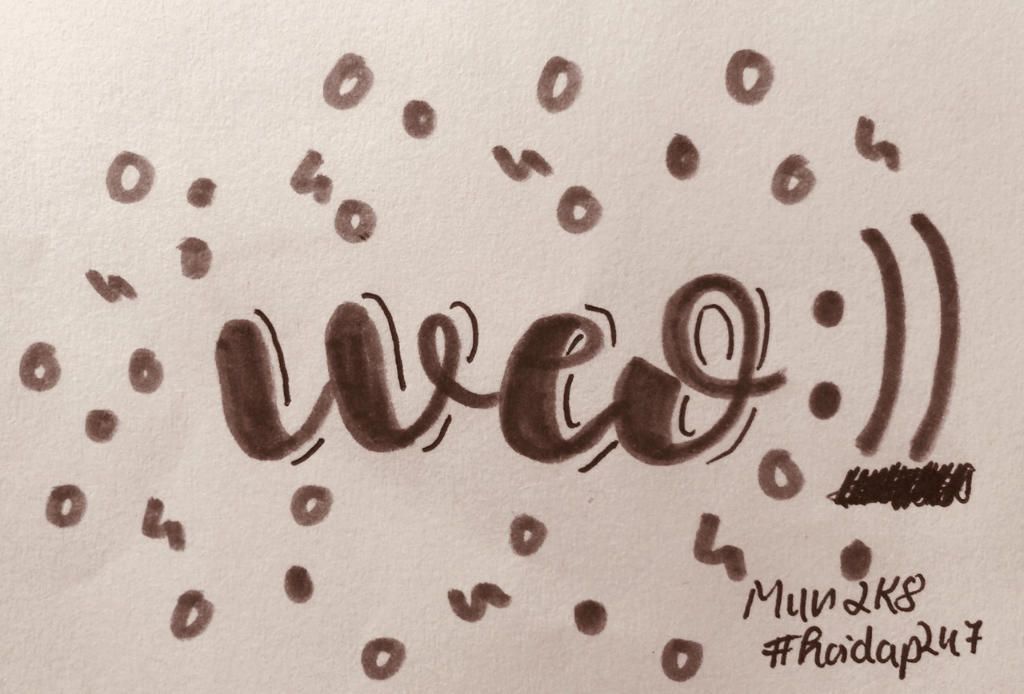 weo :))
Mun2K8
#hoidap247